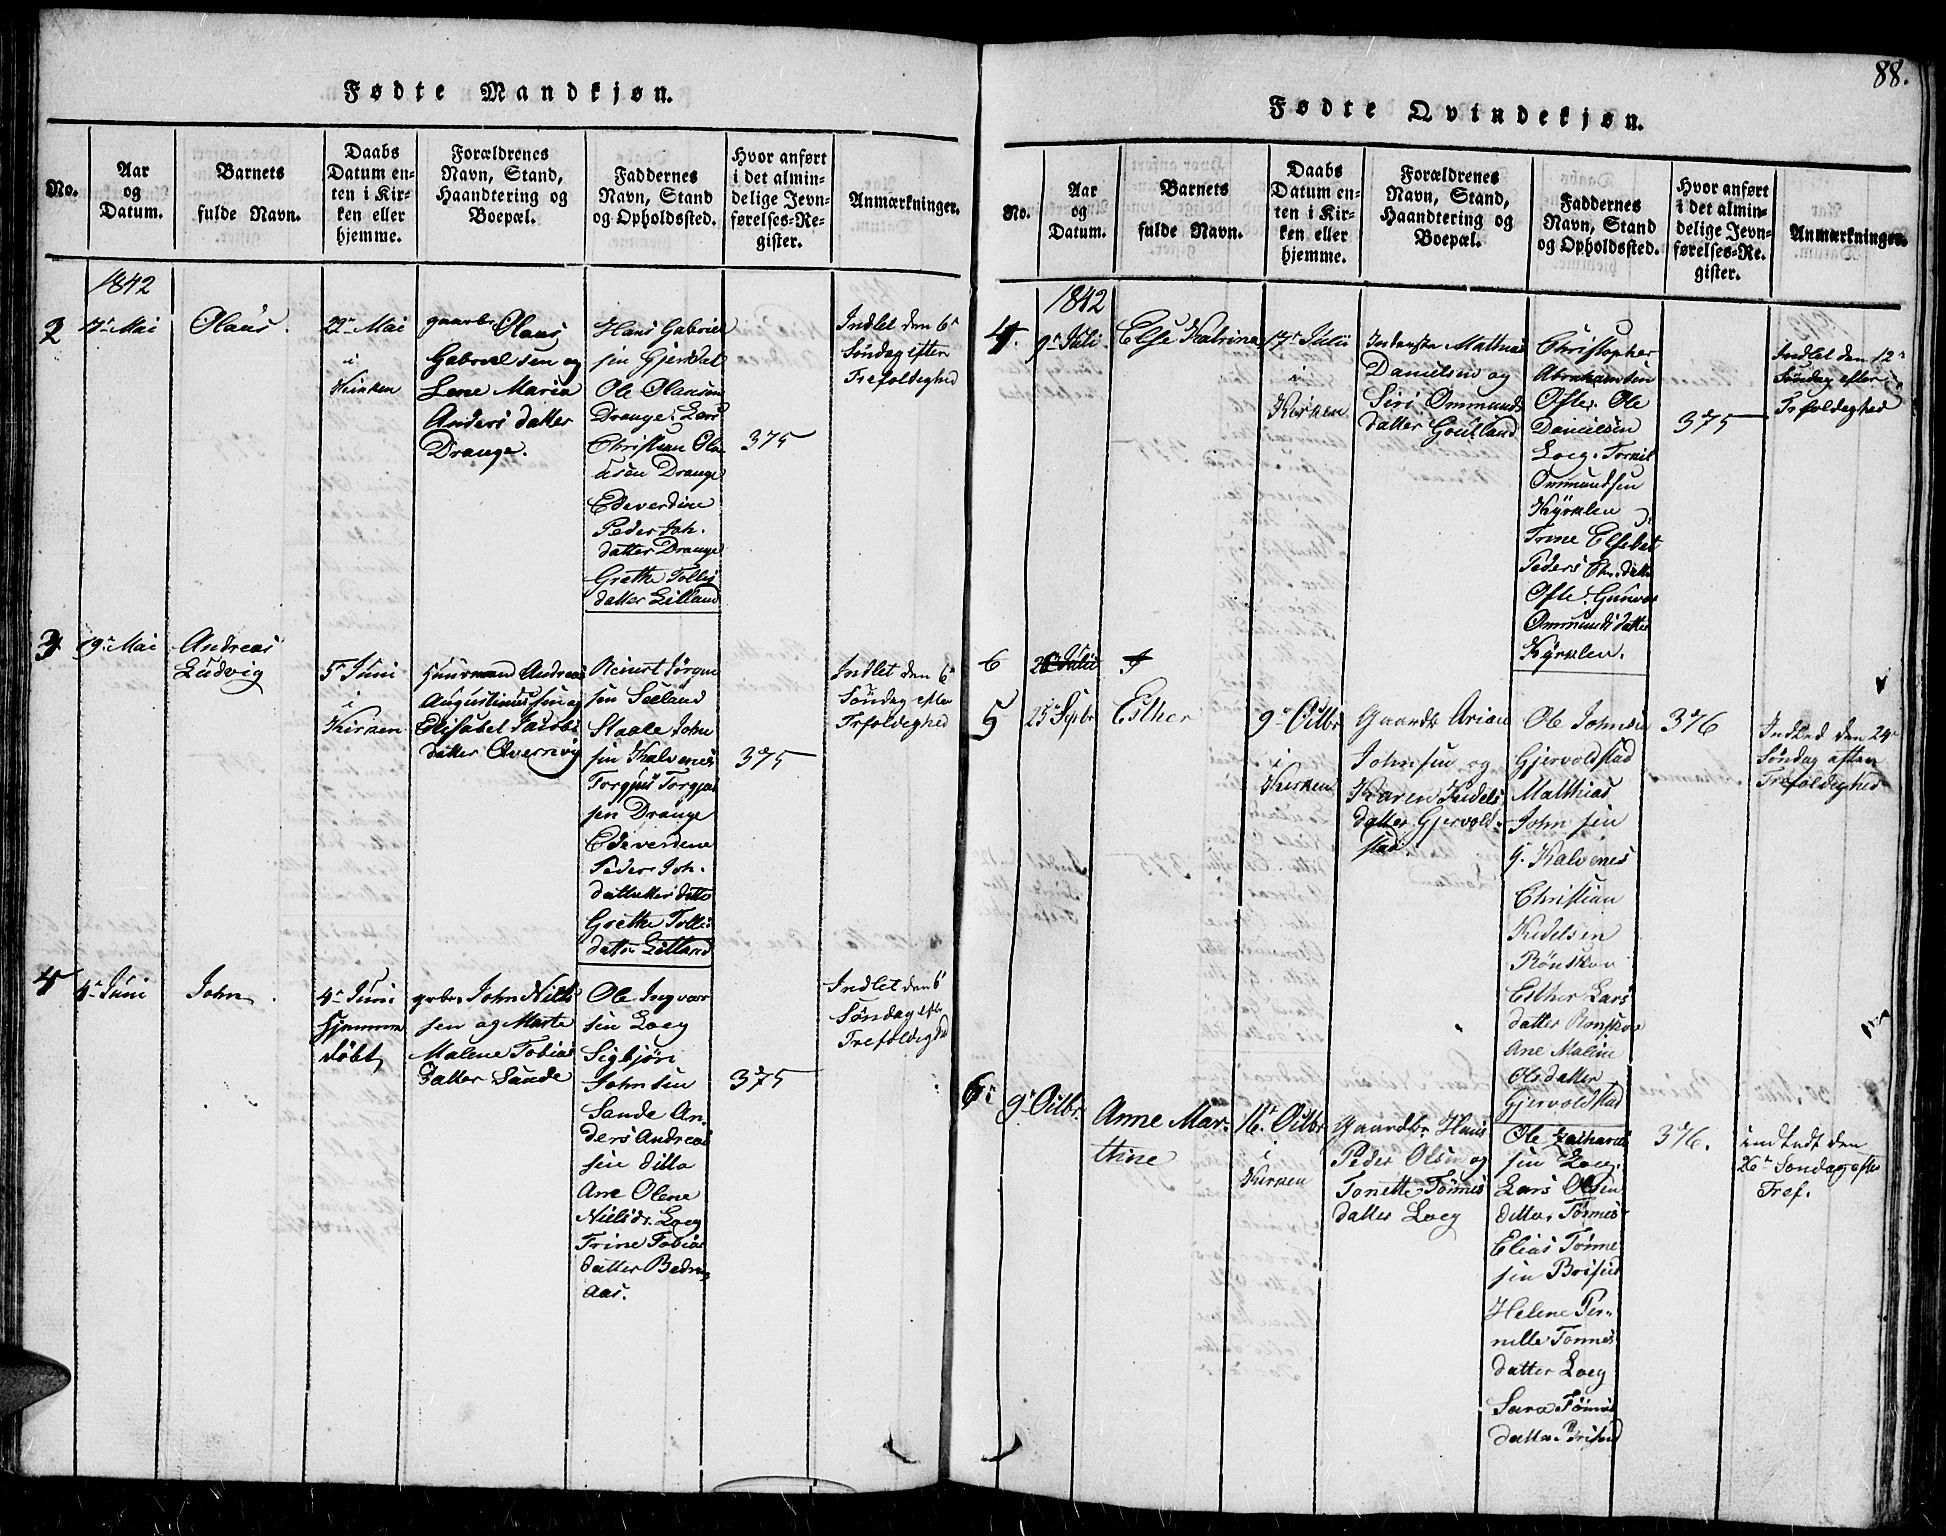 88.
Fødte Mandkjøn.
No.
Aar
og
Datum.
Barnets
fulde Navn.
Daabs
Datum en-
ten i Kir-
ken eller
hjemme.
Forældrenes
Navn, Stand,
Haandtering og
Boepæl.
Faddernes
Navn, Stand
og Opholdssted.
Hvor anført
i det almin-
delige Jevn-
førelses-Re-
gister.
Anmærkninger.
1842
2
7de Mai
Olaus.
22de Mai
i
Kirken
gaardbr Olaus
Gabrielsen og
Lene Maria
Anders datter
Drange.
Hans Gabriel
sen Gjerdal
Ole Olausen
Drange. Lars
Christian Ola
usen Drange
Edeverdine
Peder Joh.
datter Drange
Grethe Tolles
datter Lilland
375
Indlet den 6te
Søndag efter
Trefoldeghed
3
19de Mai
Andreas
Ludvig
5te Juni
i
Kirken
Huusmand Andreas
Augustinussen og
Elisabet Jacobs
datter Qvernvig
Reinert Jørgen
sen Seeland
Staale John
sen Kalvenes
Torgius Torgius
sen Drange
Edeverdine
Peder Joh.
datter ditto
Grethe Tolles
datter Lilland
375
Indlet den 6te
Søndag efter
Trefoldeghed
4
4de Juni
John
4de Juni
hjemme
døbt
grbr. John Niels
sen og Marte
Malene Tobias
datter Sande
Ole Ingvar
sen Loeg
Sigbjørn
Johnsen
Sande An-
ders Andreas
sen ditto
Ane Olene
Nielsdr. Loeg
Trine Tobias
datter Bedn
aas.
375
Indlet den 6te
Søndag eftr
Trefoldeghd
Fødte Qvindekjøn.
No.
Aar
og
Datum.
Barnets
fulde Navn.
Daabs
Datum en-
ten i Kir-
ken eller
hjemme.
Forældrenes
Navn, Stand,
Haandtering og
Boepæl.
Faddernes
Navn, Stand
og Opholdssted.
Hvor anført
i det almin-
delige Jevn-
førelses-Re-
gister.
Anmærkninger.
1842
4.
9de Juli
Else Katrine
17de Julii
i
Kirken
Inderste Mathias
Danielsen og
Siri Ommunds
datter Goutland
Christopher
Abrahamsen
Ofte. Ole
Danielsen
Loeg. Torkil
Ommundsen
Kÿrklen
Trine Elsebet
Peders Chr. datter
Ofte. Gunvor
Ommunds datter
Kÿrklen.
375
Indlet den 12te
Søndag efter
Trefoldeghed
6
5
25de Sepbr
Esther
9de Octbr
i
Kirken
Gaardbr Arian
Johnsen og
Karen Kidels
datter Gjervold-
stad.
Ole Johnsen
Gjervoldstad
Matthias
Johnsen
G. Kalvenes
Christian
Kedelsen
Rønskov
Esther Lars
datter Ronskov
Ane Malene
Olsdatter
Gjervoldstad
376
Indled den 24de
Søndag efter
Trefoldeghed
6te
9de Octbr.
Anne Mar-
thine
16de Octbr
i
Kirken
Gaardbr. Hans
Peder Olsen og
Tonette Tønnes
datter Loeg
Ole Zacharias
sen Loeg.
Lars Olsen
ditto. Tønnes
Elias Tønne
sen Brisen
Helene Per-
nille Tonnes
datter Loeg
Sara Tønnes
datter Brisen
376.
indledt den
26de Sondag efter
Tref.